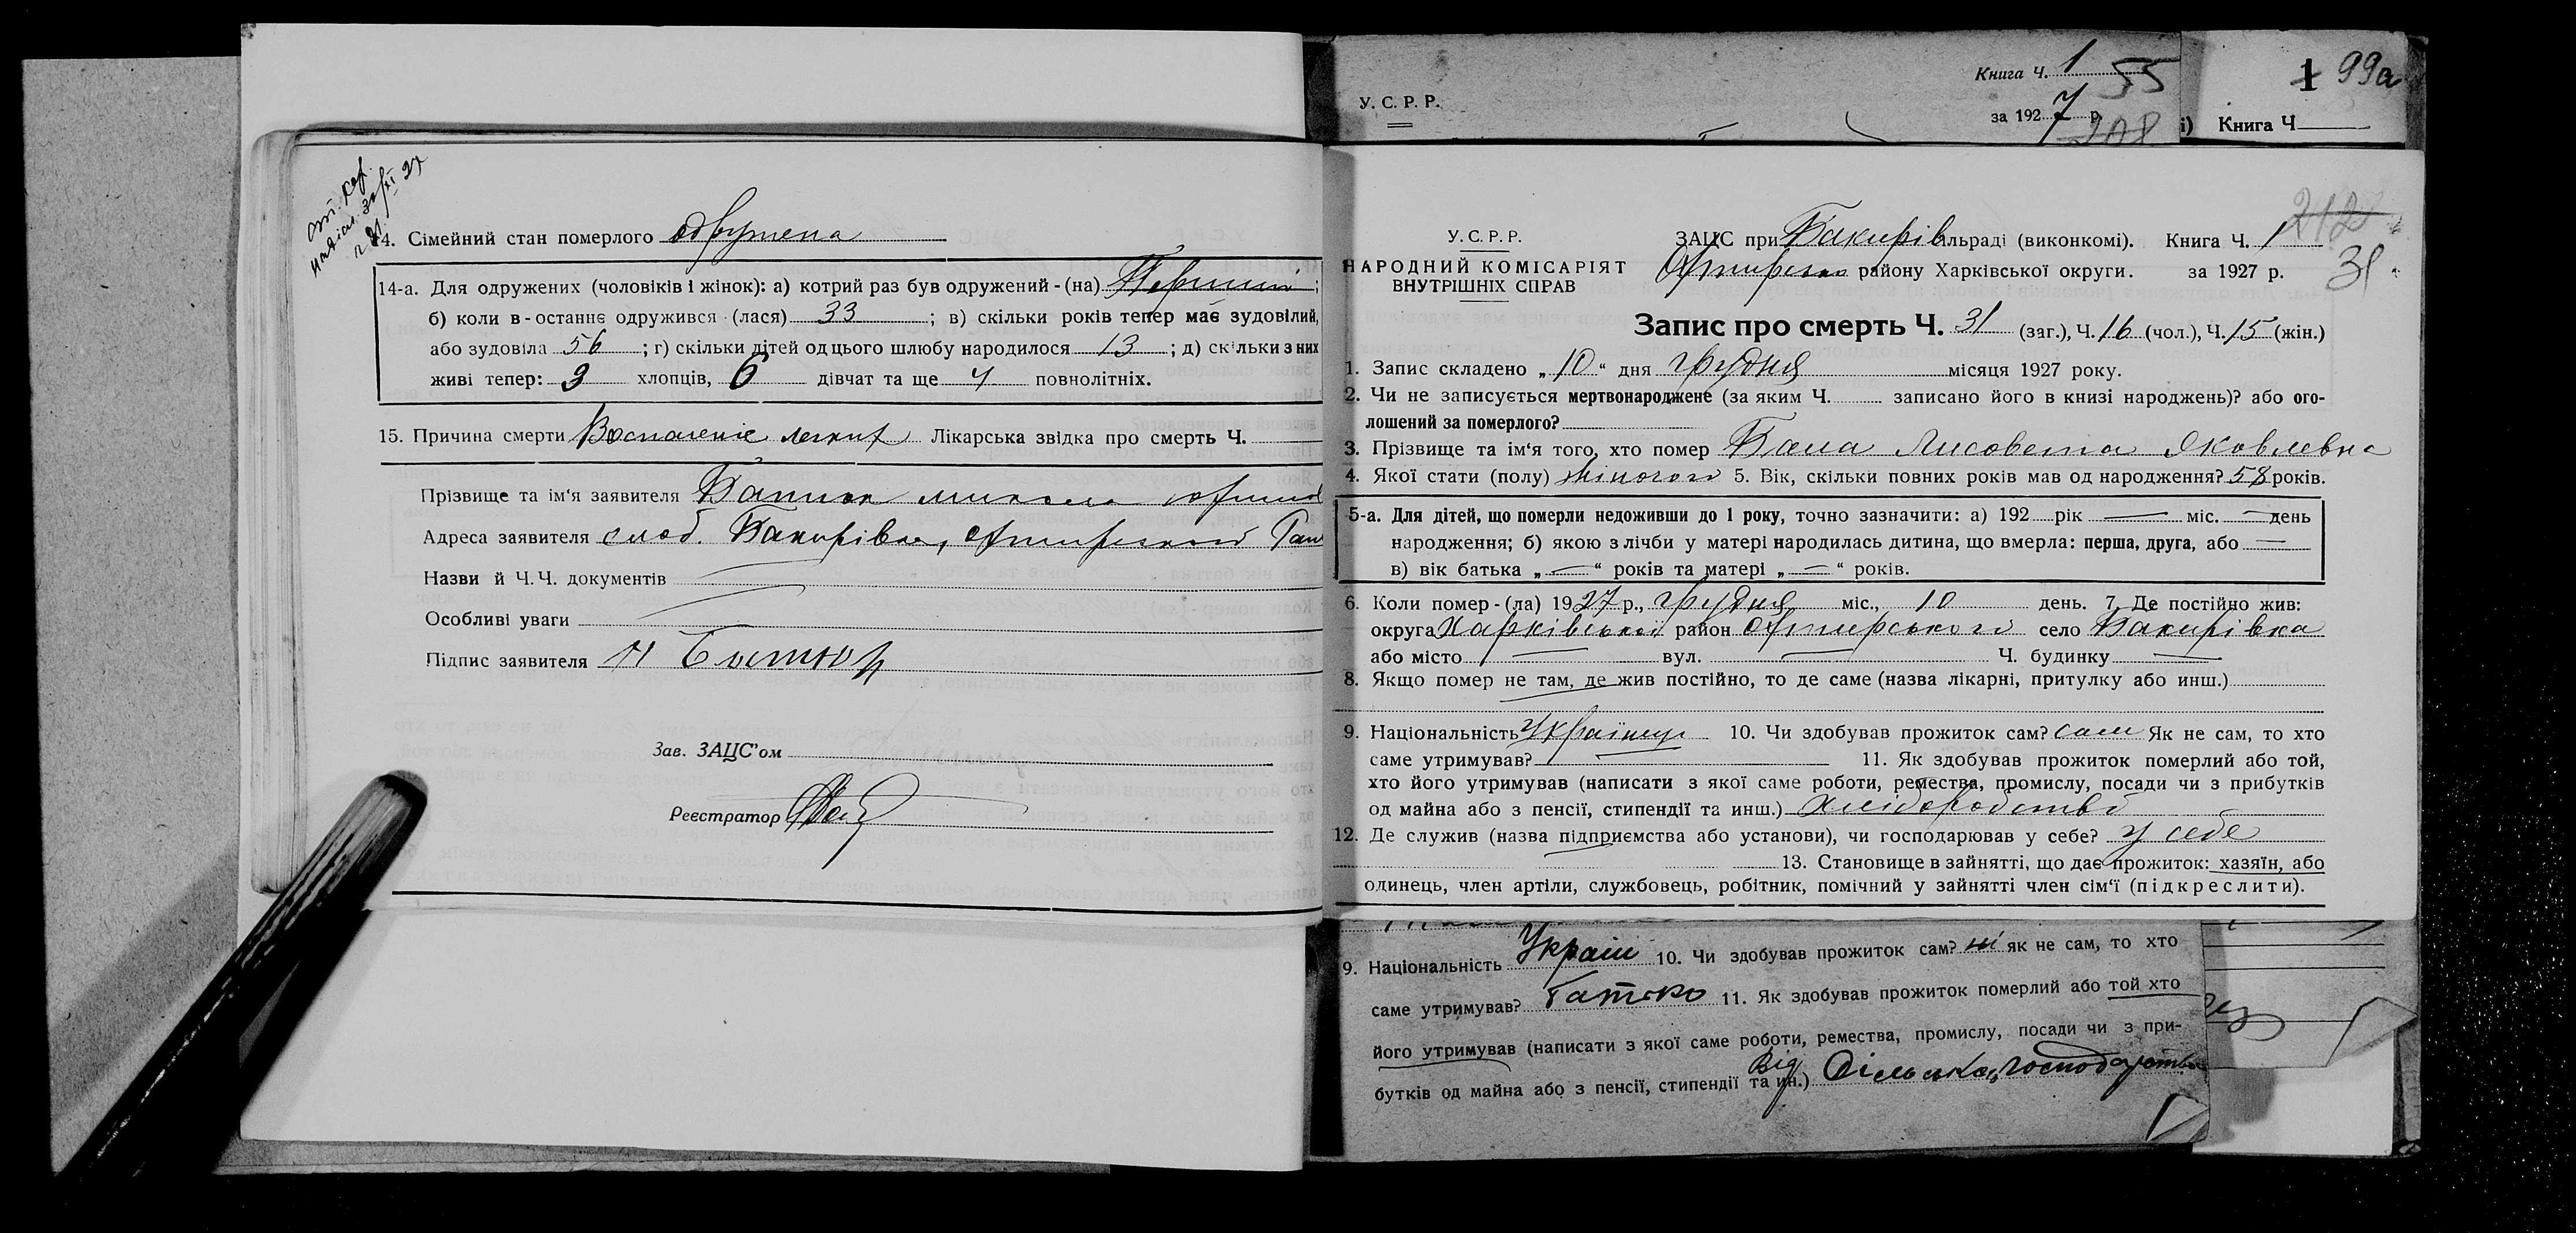 14. Сімейний стан померлого одружена
14-а. Для одружених (чоловіків і жінок): а) котрий раз був одружений - (на) Перший;
б) коли в-останнє одружився - (лася) 33; в) скільки років тепер має зудовілий,
або зудовіла 56; г) скільки дітей од цього шлюбу народилося 13; д) скільки з них
живі тепер: 3 хлопців, 6 дівчат та ще 4 повнолітніх.
15. Причина смерти Воспаление легких Лікарська звідка про смерть Ч.
Прізвище та ім'я заявителя
Адреса заявителя слоб. Бакирівка,
Назви й Ч.Ч. документів
Особливі уваги
Підпис заявителя
Зав. ЗАЦС'ом
Реєстратор
У. С. Р. Р.
Книга Ч. 1
55
за 1927 р.
208
1 99а
і) Книга Ч
212
31
У. С. Р. Р.
НАРОДНИЙ КОМІСАРІЯТ
ВНУТРІШНІХ СПРАВ
ЗАЦС при Бакирів льраді (виконкомі). Книга Ч. 1
району Харківської округи. за 1927 р.
Запис про смерть Ч. 31 (заг.), Ч. 16 (чол.), Ч. 15 (жін.)
1. Запис складено „10“ дня грудня місяця 1927 року.
2. Чи не записується мертвонароджене (за яким Ч. записано його в книзі народжень)? або ого-
лошений за померлого?
3. Прізвище та ім'я того, хто помер Лисовета Яковлевна
4. Якої стати (полу) жіночого 5. Вік, скільки повних років мав од народження? 58 років.
5-а. Для дітей, що померли недоживши до 1 року, точно зазначити: а) 192 рік — міс. — день
народження; б) якою з лічби у матері народилась дитина, що вмерла: перша, друга, або —
в) вік батька „—“ років та матері „—“ років.
6. Коли помер - (ла) 1927 р., грудня міс., 10 день. 7. Де постійно жив:
округа Харківської район село Бакирівка
або місто — вул. — Ч. будинку —
8. Якщо помер не там, де жив постійно, то де саме (назва лікарні, притулку або инш.)
9. Національність 10. Чи здобував прожиток сам? сам Як не сам, то хто
саме утримував? — 11. Як здобував прожиток померлий або той,
хто його утримував (написати з якої саме роботи, ремества, промислу, посади чи з прибутків
од майна або з пенсії, стипендії та инш.) хліборобство
12. Де служив (назва підприємства або установи), чи господарював у себе? у себе
13. Становище в зайнятті, що дає прожиток: хазяїн, або
одинець, член артіли, службовець, робітник, помічний у зайнятті член сім'ї (підкреслити).
9. Національність Україн 10. Чи здобував прожиток сам? ні як не сам, то хто
саме утримував? батько 11. Як здобував прожиток померлий або той хто
його утримував (написати з якої саме роботи, ремества, промислу, посади чи з при-
бутків од майна або з пенсії, стипендії та ин.) Від